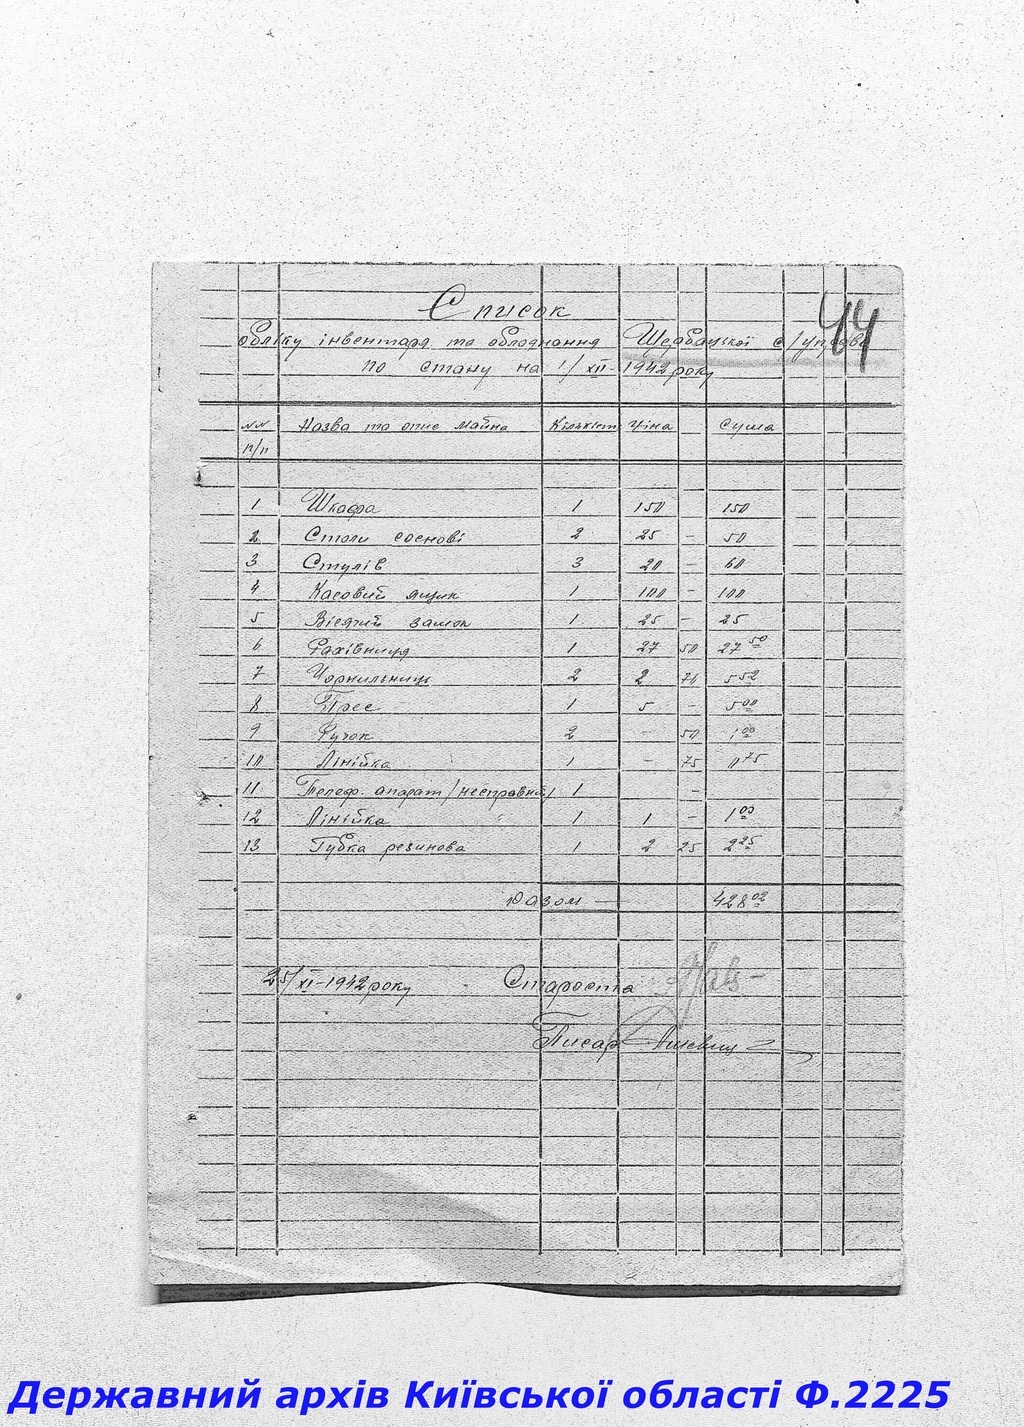 44
Список
обліку інвентаря та обладнання Щербацької с/управи
по стану на 1/XII-1942 року
№№ п/п Назва та опис майна Кількіст Ціна Сума
1 Шкафа 1 150 150
2 Столи соснові 2 25 - 50
3 Стулів 3 20 - 60
4 Касовий ящик 1 100 - 100
5 Висячий замок 1 25 - 25
6 Рахівниця 1 27 50 27 50
7 Чорнильниць 2 2 76 5 52
8 Прес 1 5 - 5 00
9 Ручок 2 - 50 1 00
10 Лінійка 1 - 75 0 75
11 Телеф. апарат /несправний/ 1 -
12 Лінійка 1 1 - 1 00
13 Губка резинова 1 2 25 2 25
Разом — 428 02
25/XI-1942 року Староста
Писар
Державний архів Київської області Ф.2225